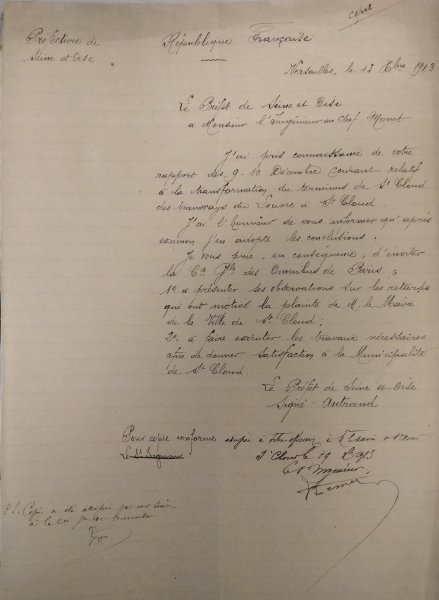 copie
Préfecture de
Seine et Oise
République Française
Versailles, le 13 Xbre 1913
Le Préfet de Seine et Oise
à Monsieur l'Ingénieur en Chef Monet
J'ai pris connaissance de votre
rapport des 9-10 Décembre courant relatif
à la transformation du terminus de St Cloud
des tramways du Louvre à St Cloud
J'ai l'honneur de vous informer qu'après
examen j'en adopte les conclusions.
Je vous prie, en conséquence, d'inviter
la Cie Gle des Omnibus de Paris :
1° à présenter ses observations sur les retards
qui ont motivé la plainte de M. le Maire
de la Ville de St Cloud ;
2° à faire exécuter les travaux nécessaires
afin de donner satisfaction à la Municipalité
de St Cloud.
Le Préfet de Seine et Oise
Signé : Autrand
Pour copie conforme à
Le St Cloud le 19 1913
L'Ingénieur,
P.S. Copie a été par
à la Cie